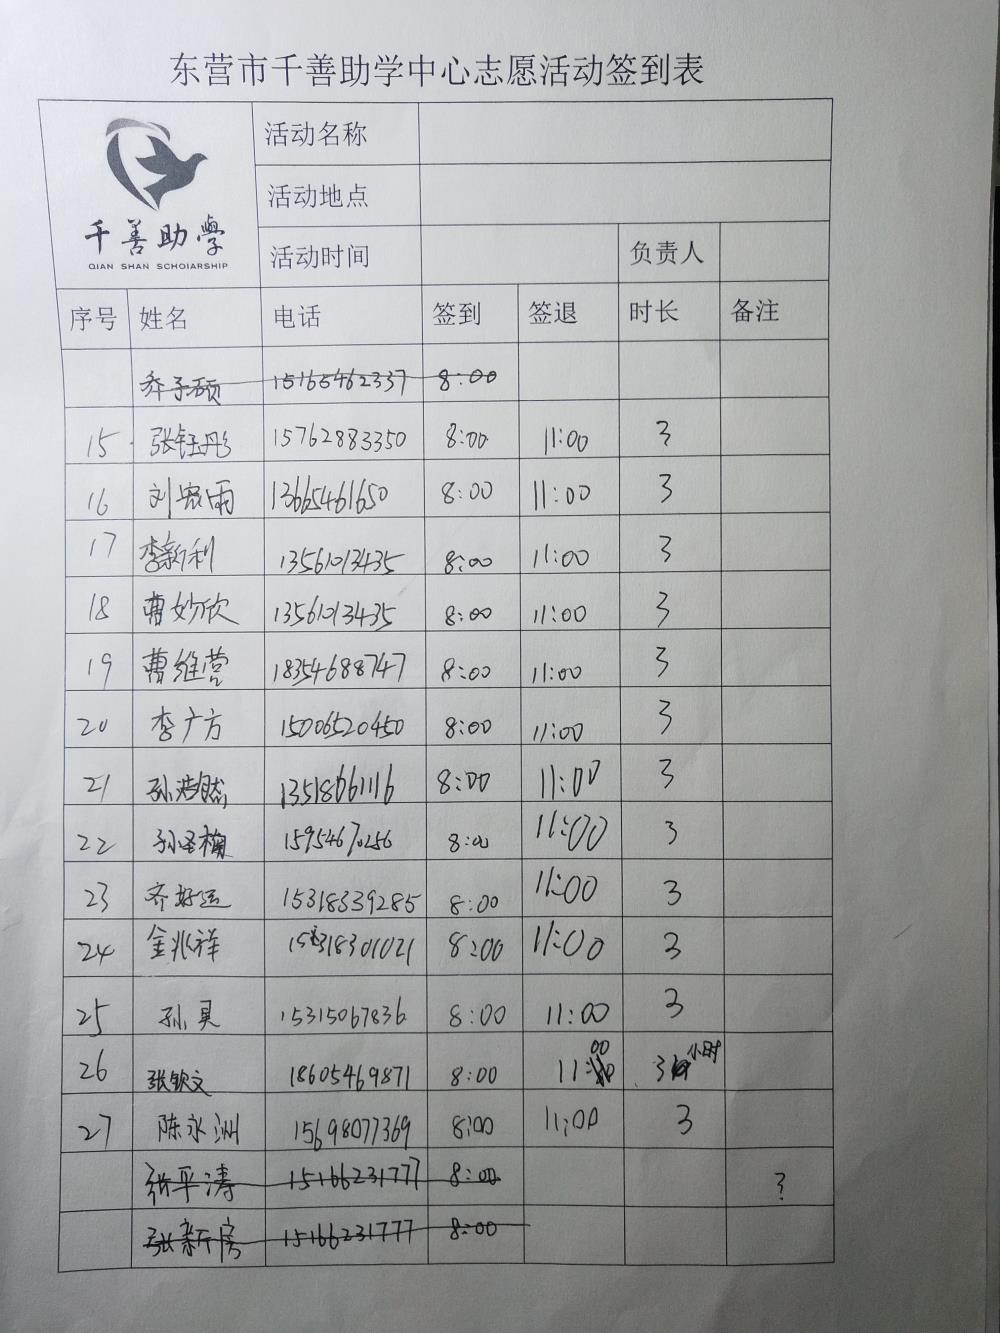 东营市千善助学中心志愿活动签到表
千善助學
QIAN SHAN SCHOIARSHIP
活动名称
活动地点
活动时间 负责人
序号 姓名 电话 签到 签退 时长 备注
乔子硕 15165462337 8:00
15 张钰彤 15762883350 8:00 11:00 3
16 刘宸雨 13665461650 8:00 11:00 3
17 李新利 13561013435 8:00 11:00 3
18 曹妙欣 13561013435 8:00 11:00 3
19 曹维营 18354688747 8:00 11:00 3
20 李广方 15006520450 8:00 11:00 3
21 孙浩然 13518661116 8:00 11:00 3
22 孙圣楠 15954670256 8:00 11:00 3
23 齐好运 15318339285 8:00 11:00 3
24 金兆祥 15318301021 8:00 11:00 3
25 孙昊 15315067836 8:00 11:00 3
26 张钦文 18605469871 8:00 11:00 3小时
27 陈永洲 15698077369 8:00 11:00 3
张平涛 15166231777 8:00 ?
张新房 15166231777 8:00